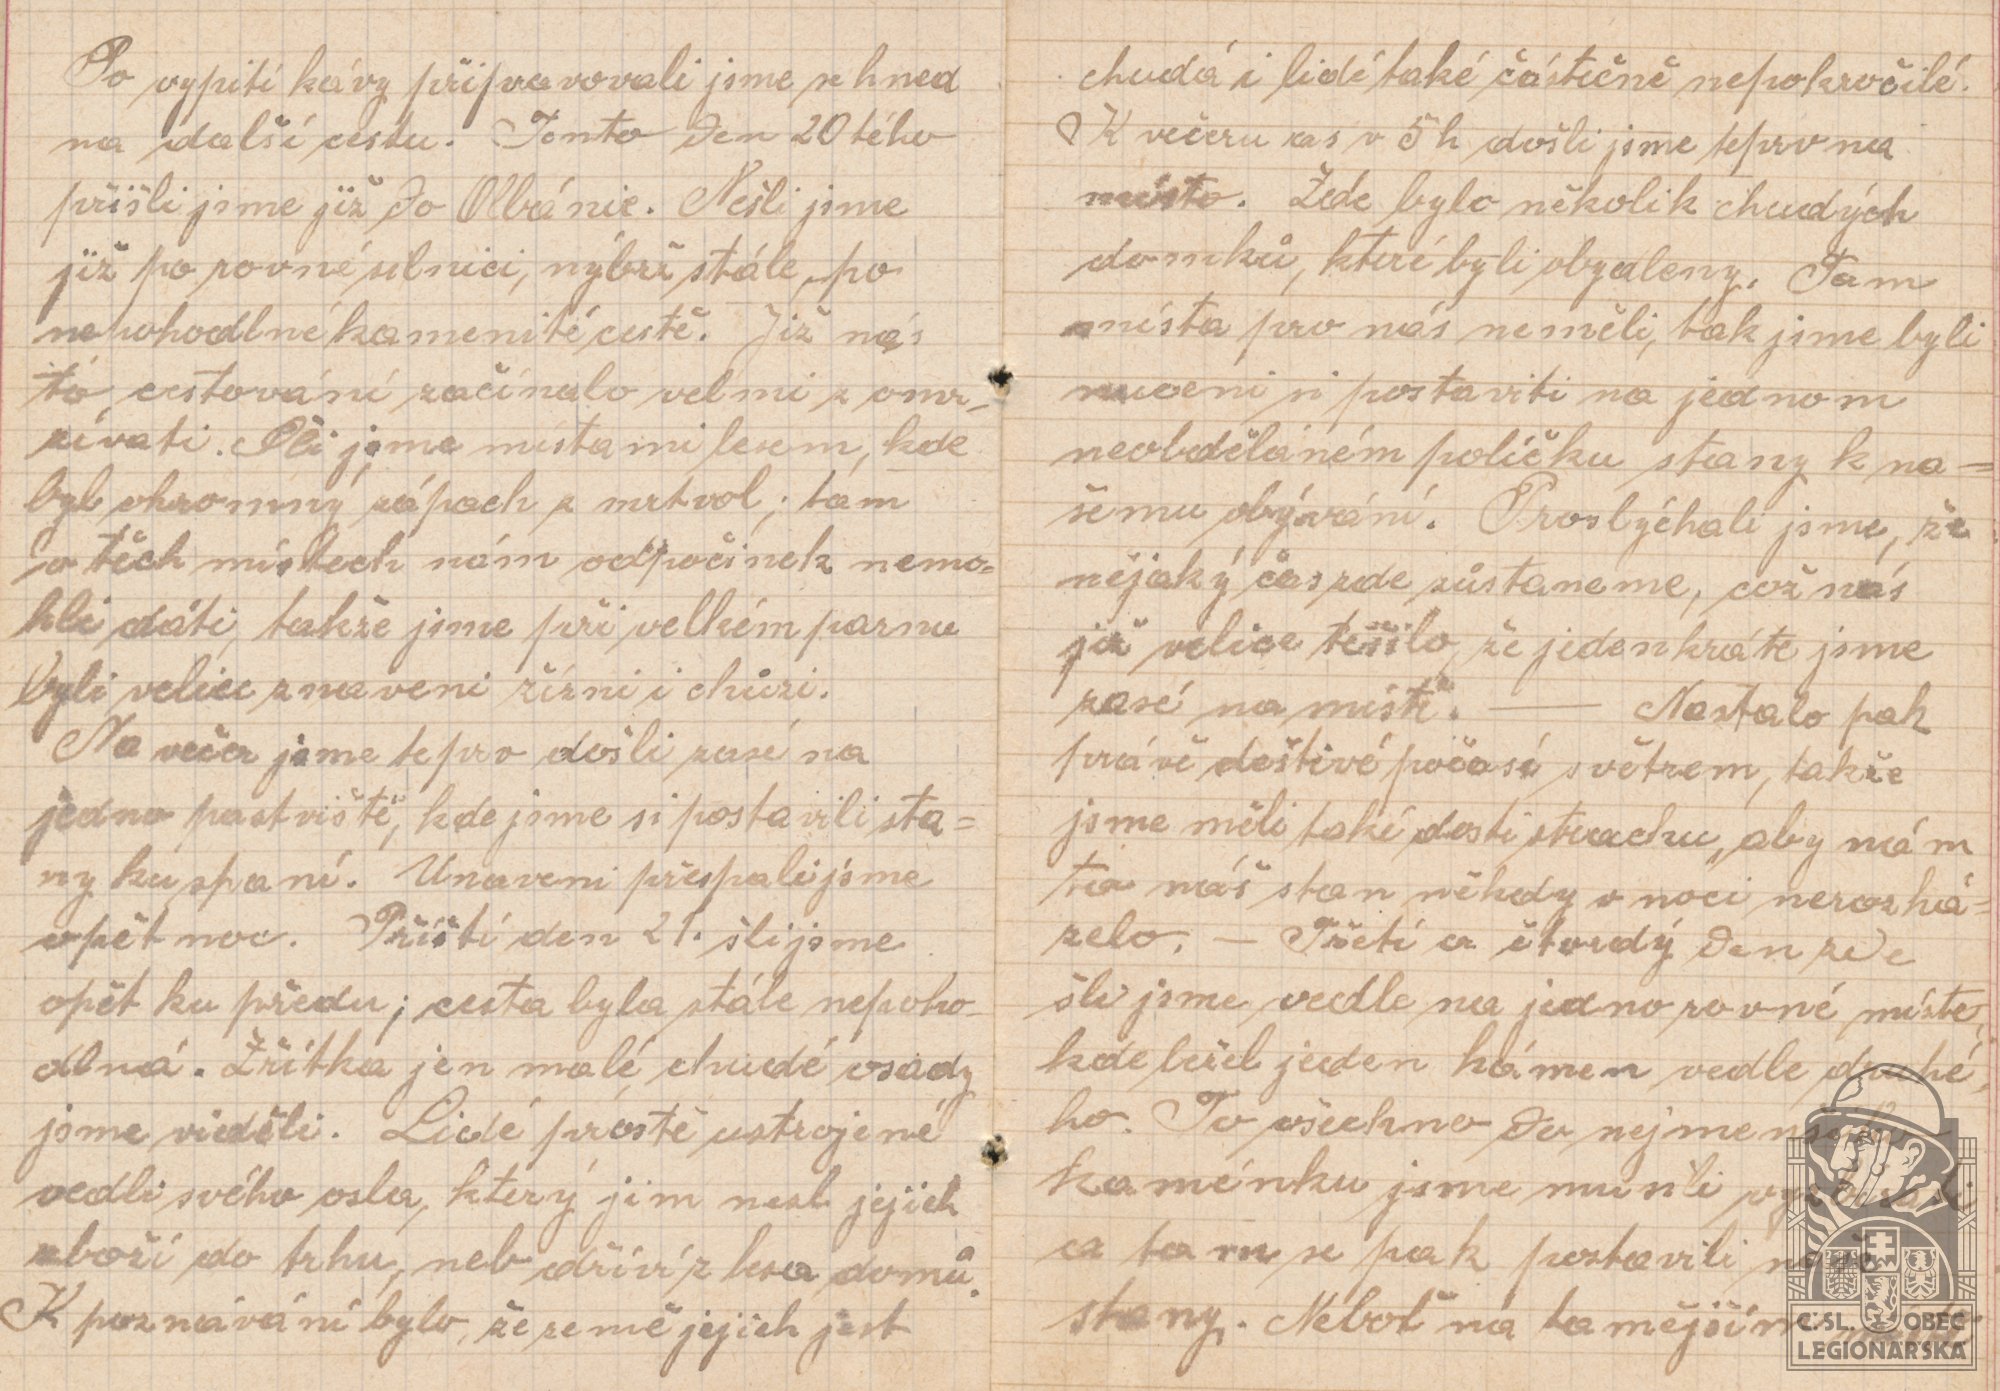 Po vypití kávy připravovali jsme se hned
na další cestu. Tento den 20tého
přišli jsme již do Albánie. Nešli jsme
již po rovné silnici, nýbrž stále, po
nepohodlné kamenité cestě. Již nás
to cestování začínalo velmi z omr-
zívati. Šli jsme místami lesem, kde
byl ohromný zápach z mrtvol; tam
v těch místech nám odpočinek nemo-
hli dáti, takže jsme při velkém parnu
byli velice znaveni žízni i chůzi.
Na večer jsme teprv došli zasé na
jedno pastviště, kde jsme si postavili sta=
ny ku spaní. Unaveni přespali jsme
opět noc. Příští den 21. šli jsme
opět ku předu; cesta byla stále nepoho-
dlná. Zřítka jen malé, chudé osady
jsme viděli. Lidé prostě ustrojené
vedli svého osla, který jim nesl jejich
zboží do trhu, neb dříví z lesa domů.
K poznávání bylo, že země jejich jest
chudá i lidé také částečně nepokročilé.
K večeru as v 5h došli jsme teprv na
místo. Zde bylo několik chudých
domků, které byli obydleny. Tam
místa pro nás neměli, tak jsme byli
nuceni si postaviti na jednom
neobdělaném políčku stany k na=
šemu obývání. Proslýchali jsme, že
nějaký čas zde zůstaneme, což nás
již velice těšilo, že jedenkráte jsme
zasé na místě. — Nastalo pak
právě deštivé počasí s větrem, takže
jsme měli také dosti strachu, aby nám
to náš stan někdy v noci nerozhá=
zelo. — Třetí a čtvrdý den zde
šli jsme vedle na jedno rovné místo,
kde ležel jeden kámen vedle druhé-
ho. To všechno do nejmenšího
kaménku jsme musili
a tam se pak postavili naše
stany. Neboť na tamějším
Č.SL. OBEC
LEGIONÁŘSKÁ